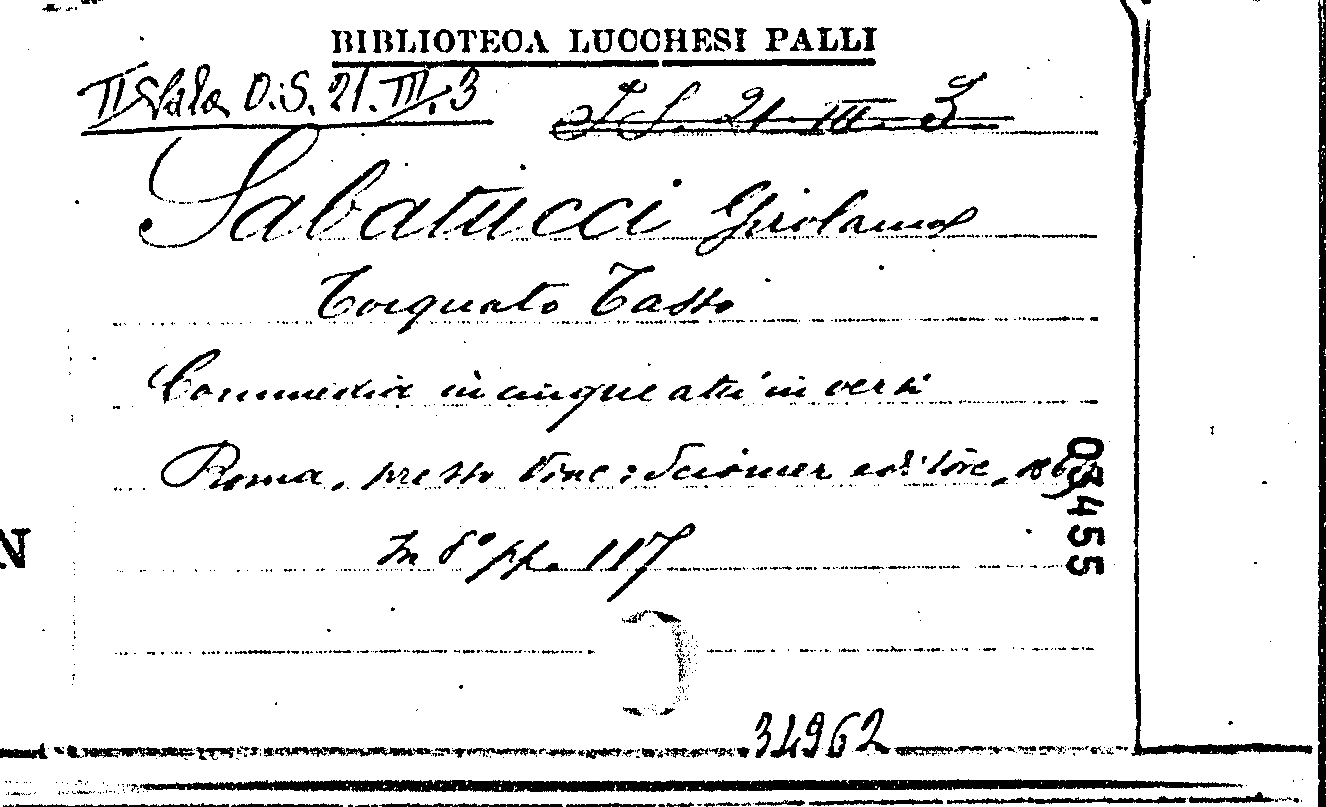 BIBLIOTECA LUCCHESI PALLI
II Sala O.S. 21. III. 3
I S. 21. III. 3
Sabatucci Girolamo
Torquato Tasso
Commedia in cinque atti in versi
Roma, presso Vinc: editore,
In 8° pp. 117
03455
N
34962